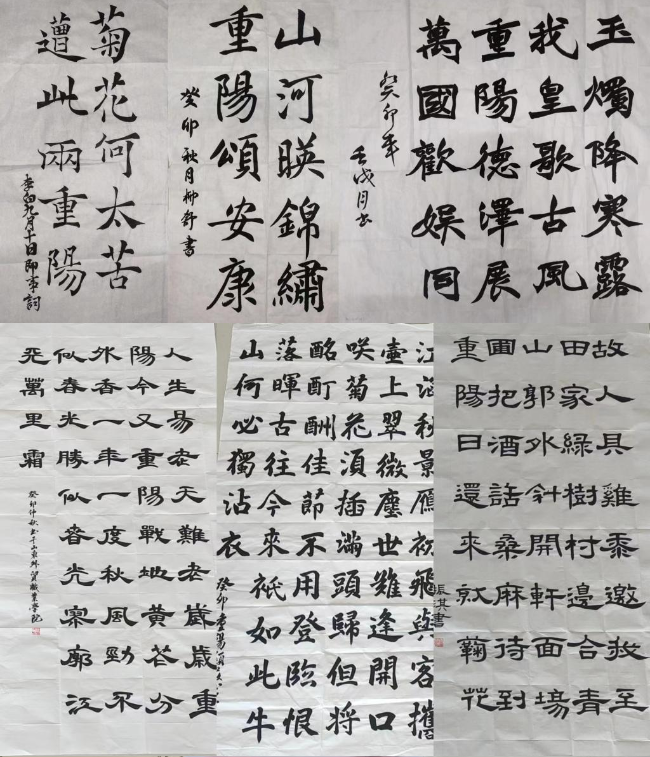 菊花何太苦
遭此兩重陽
李白九月十日即事詞
山河暎錦繡
重陽頌安康
癸卯秋月柳舒書
玉燭降寒露
我皇歌古風
重陽德澤展
萬國歡娱同
癸卯年
壬戌月书
人生易老天難老歲歲重
陽今又重陽戰地黄花分
外香一年一度秋風勁不
似春光勝似春光寥廓江
天萬里霜
癸卯仲秋书于山東外貿職業學院
江涵秋景雁初飛與客攜
壺上翠微塵世難逢開口
咲菊花須插滿頭歸但將
酩酊酬佳節不用登臨恨
落暉古往今來衹如此牛
山何必獨沾衣
癸卯重陽
故人具雞黍邀我至
田家綠樹村邊合青
山郭外斜開軒面場
圃把酒話桑麻待到
重陽日還來就菊花
書